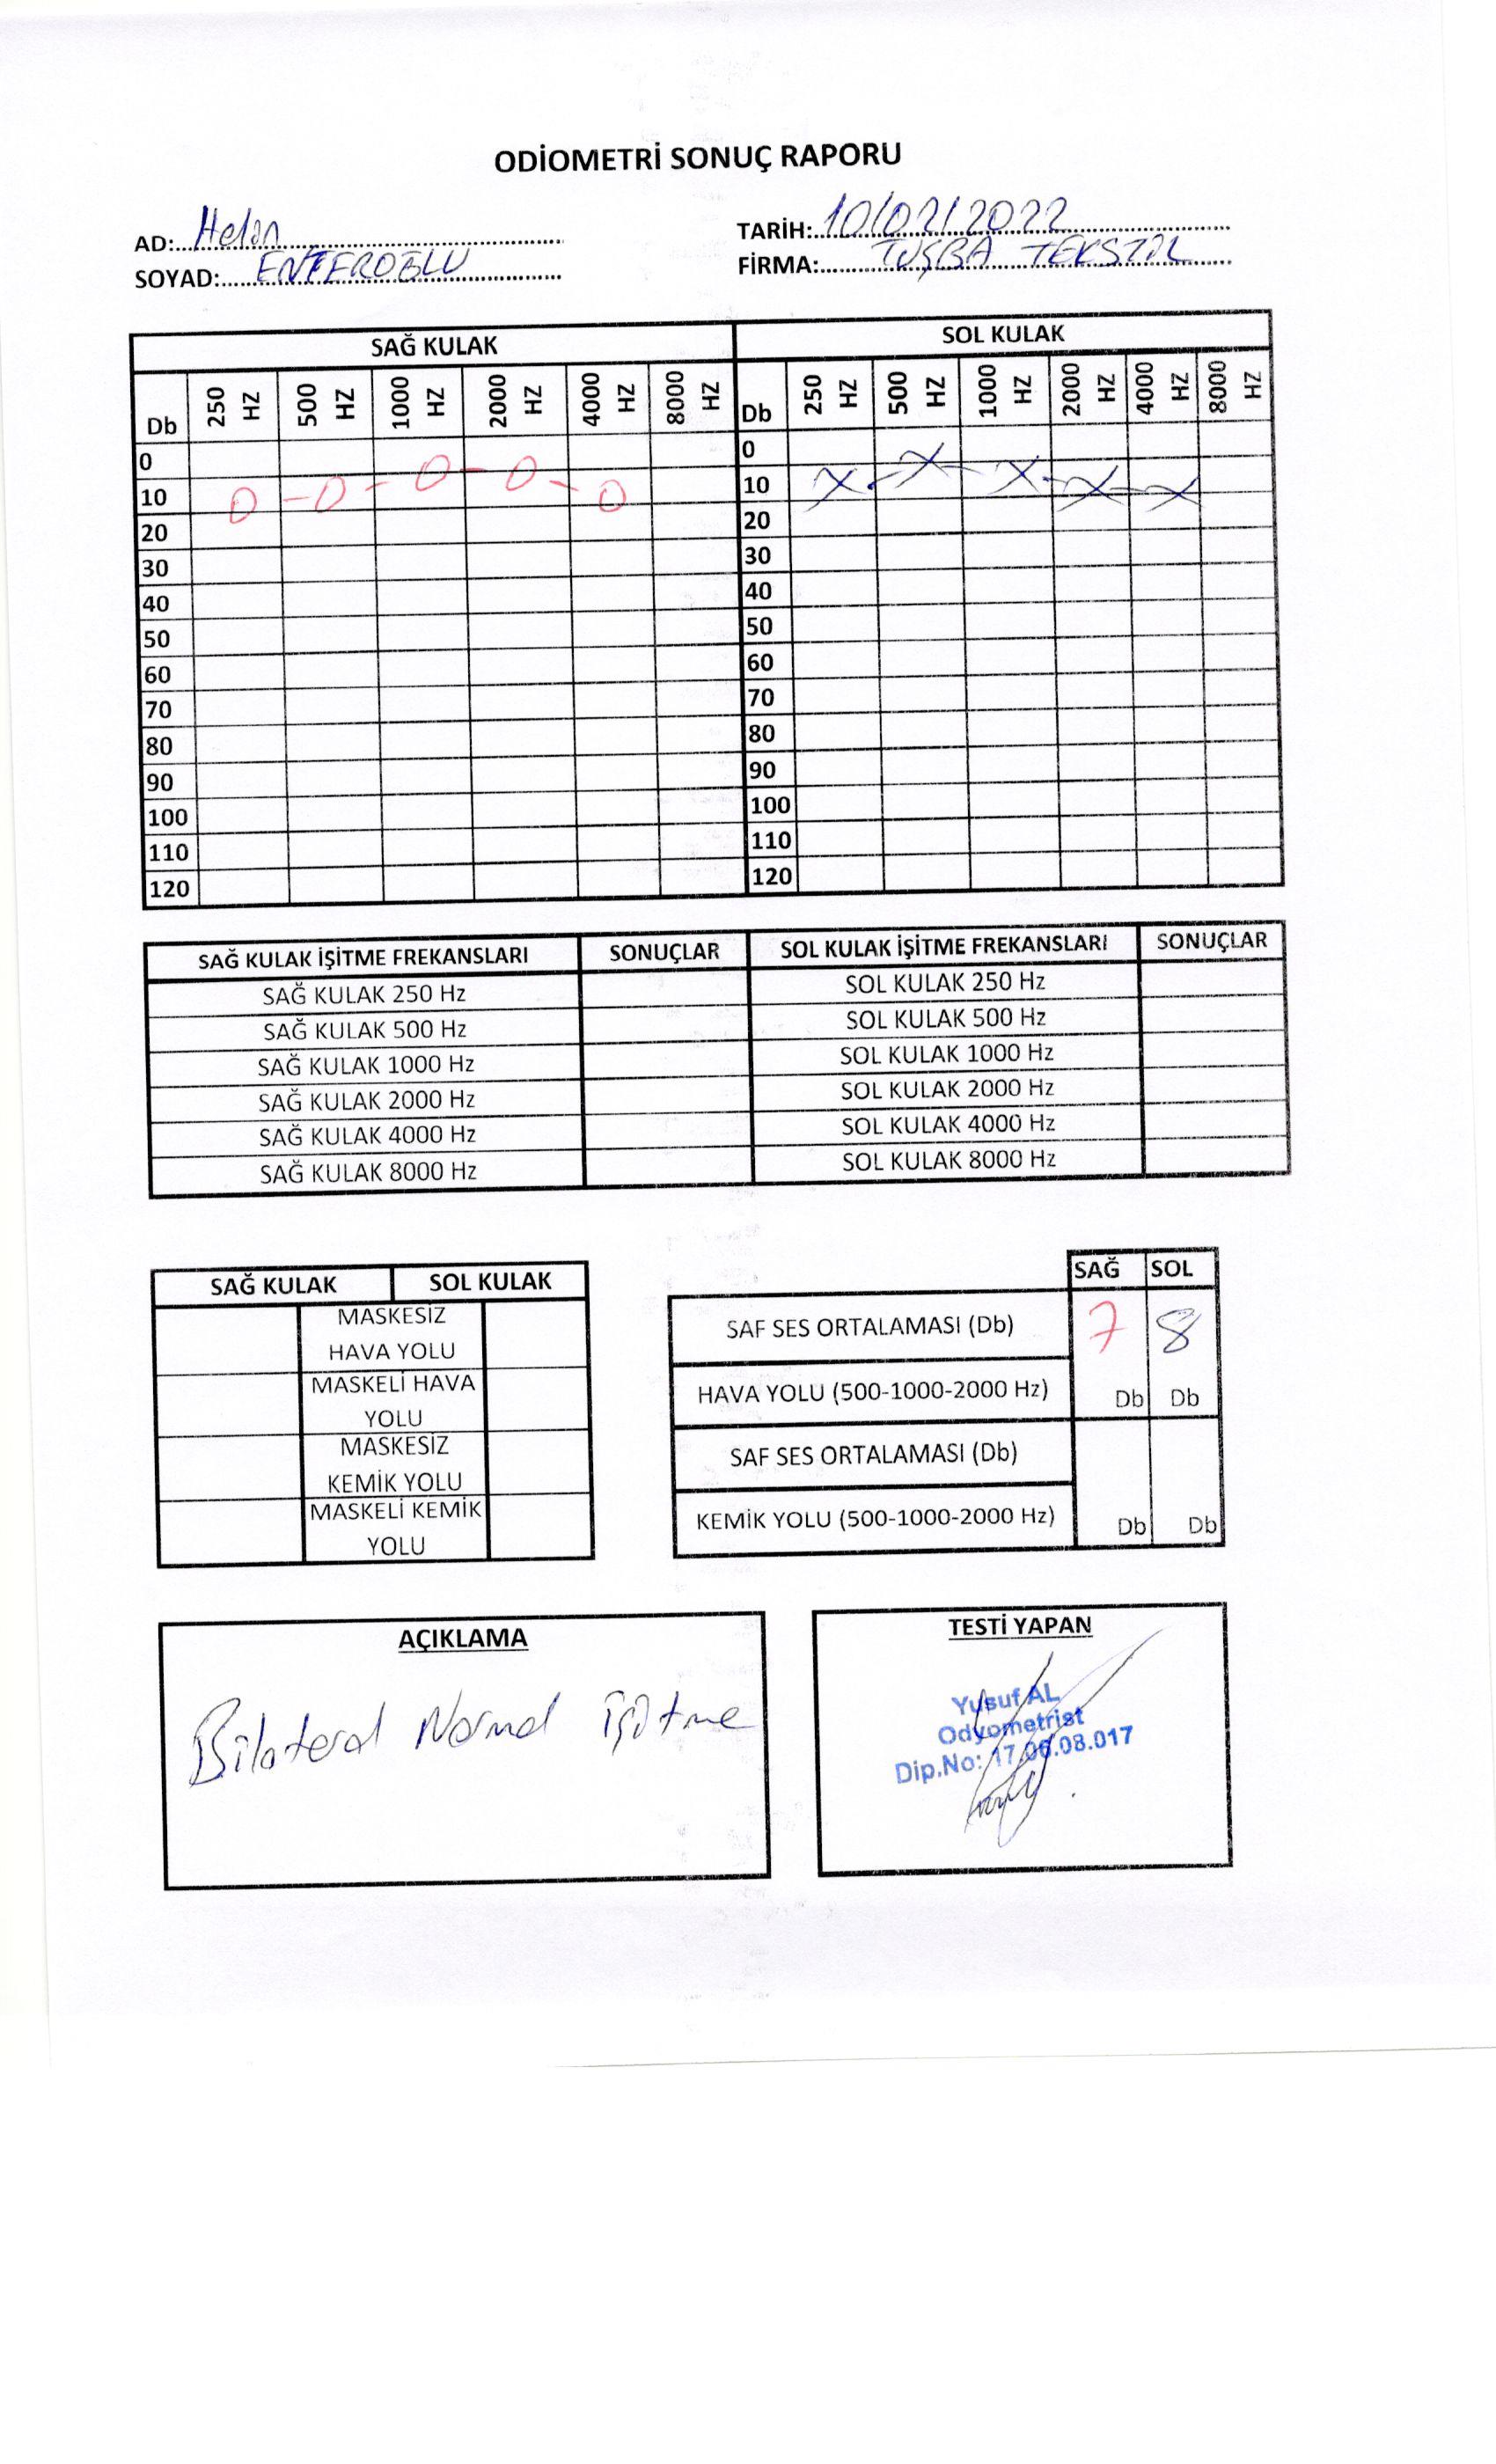 ODİOMETRİ SONUÇ RAPORU
AD: Helin TARİH: 10/02/2022
SOYAD: ENTEROĞLU FİRMA: TUŞBA TEKSTİL
SAĞ KULAK SOL KULAK
Db 250 HZ 500 HZ 1000 HZ 2000 HZ 4000 HZ 8000 HZ Db 250 HZ 500 HZ 1000 HZ 2000 HZ 4000 HZ 8000 HZ
0 0
10 10
20 20
30 30
40 40
50 50
60 60
70 70
80 80
90 90
100 100
110 110
120 120
SAĞ KULAK İŞİTME FREKANSLARI SONUÇLAR SOL KULAK İŞİTME FREKANSLARI SONUÇLAR
SAĞ KULAK 250 Hz SOL KULAK 250 Hz
SAĞ KULAK 500 Hz SOL KULAK 500 Hz
SAĞ KULAK 1000 Hz SOL KULAK 1000 Hz
SAĞ KULAK 2000 Hz SOL KULAK 2000 Hz
SAĞ KULAK 4000 Hz SOL KULAK 4000 Hz
SAĞ KULAK 8000 Hz SOL KULAK 8000 Hz
SAĞ KULAK SOL KULAK
MASKESİZ
HAVA YOLU
MASKELİ HAVA
YOLU
MASKESİZ
KEMİK YOLU
MASKELİ KEMİK
YOLU
SAĞ SOL
SAF SES ORTALAMASI (Db) 7 8
HAVA YOLU (500-1000-2000 Hz) Db Db
SAF SES ORTALAMASI (Db)
KEMİK YOLU (500-1000-2000 Hz) Db Db
AÇIKLAMA
Bilateral Normal işitme
TESTİ YAPAN
Yusuf AL
Odyometrist
Dip.No: 17.06.08.017